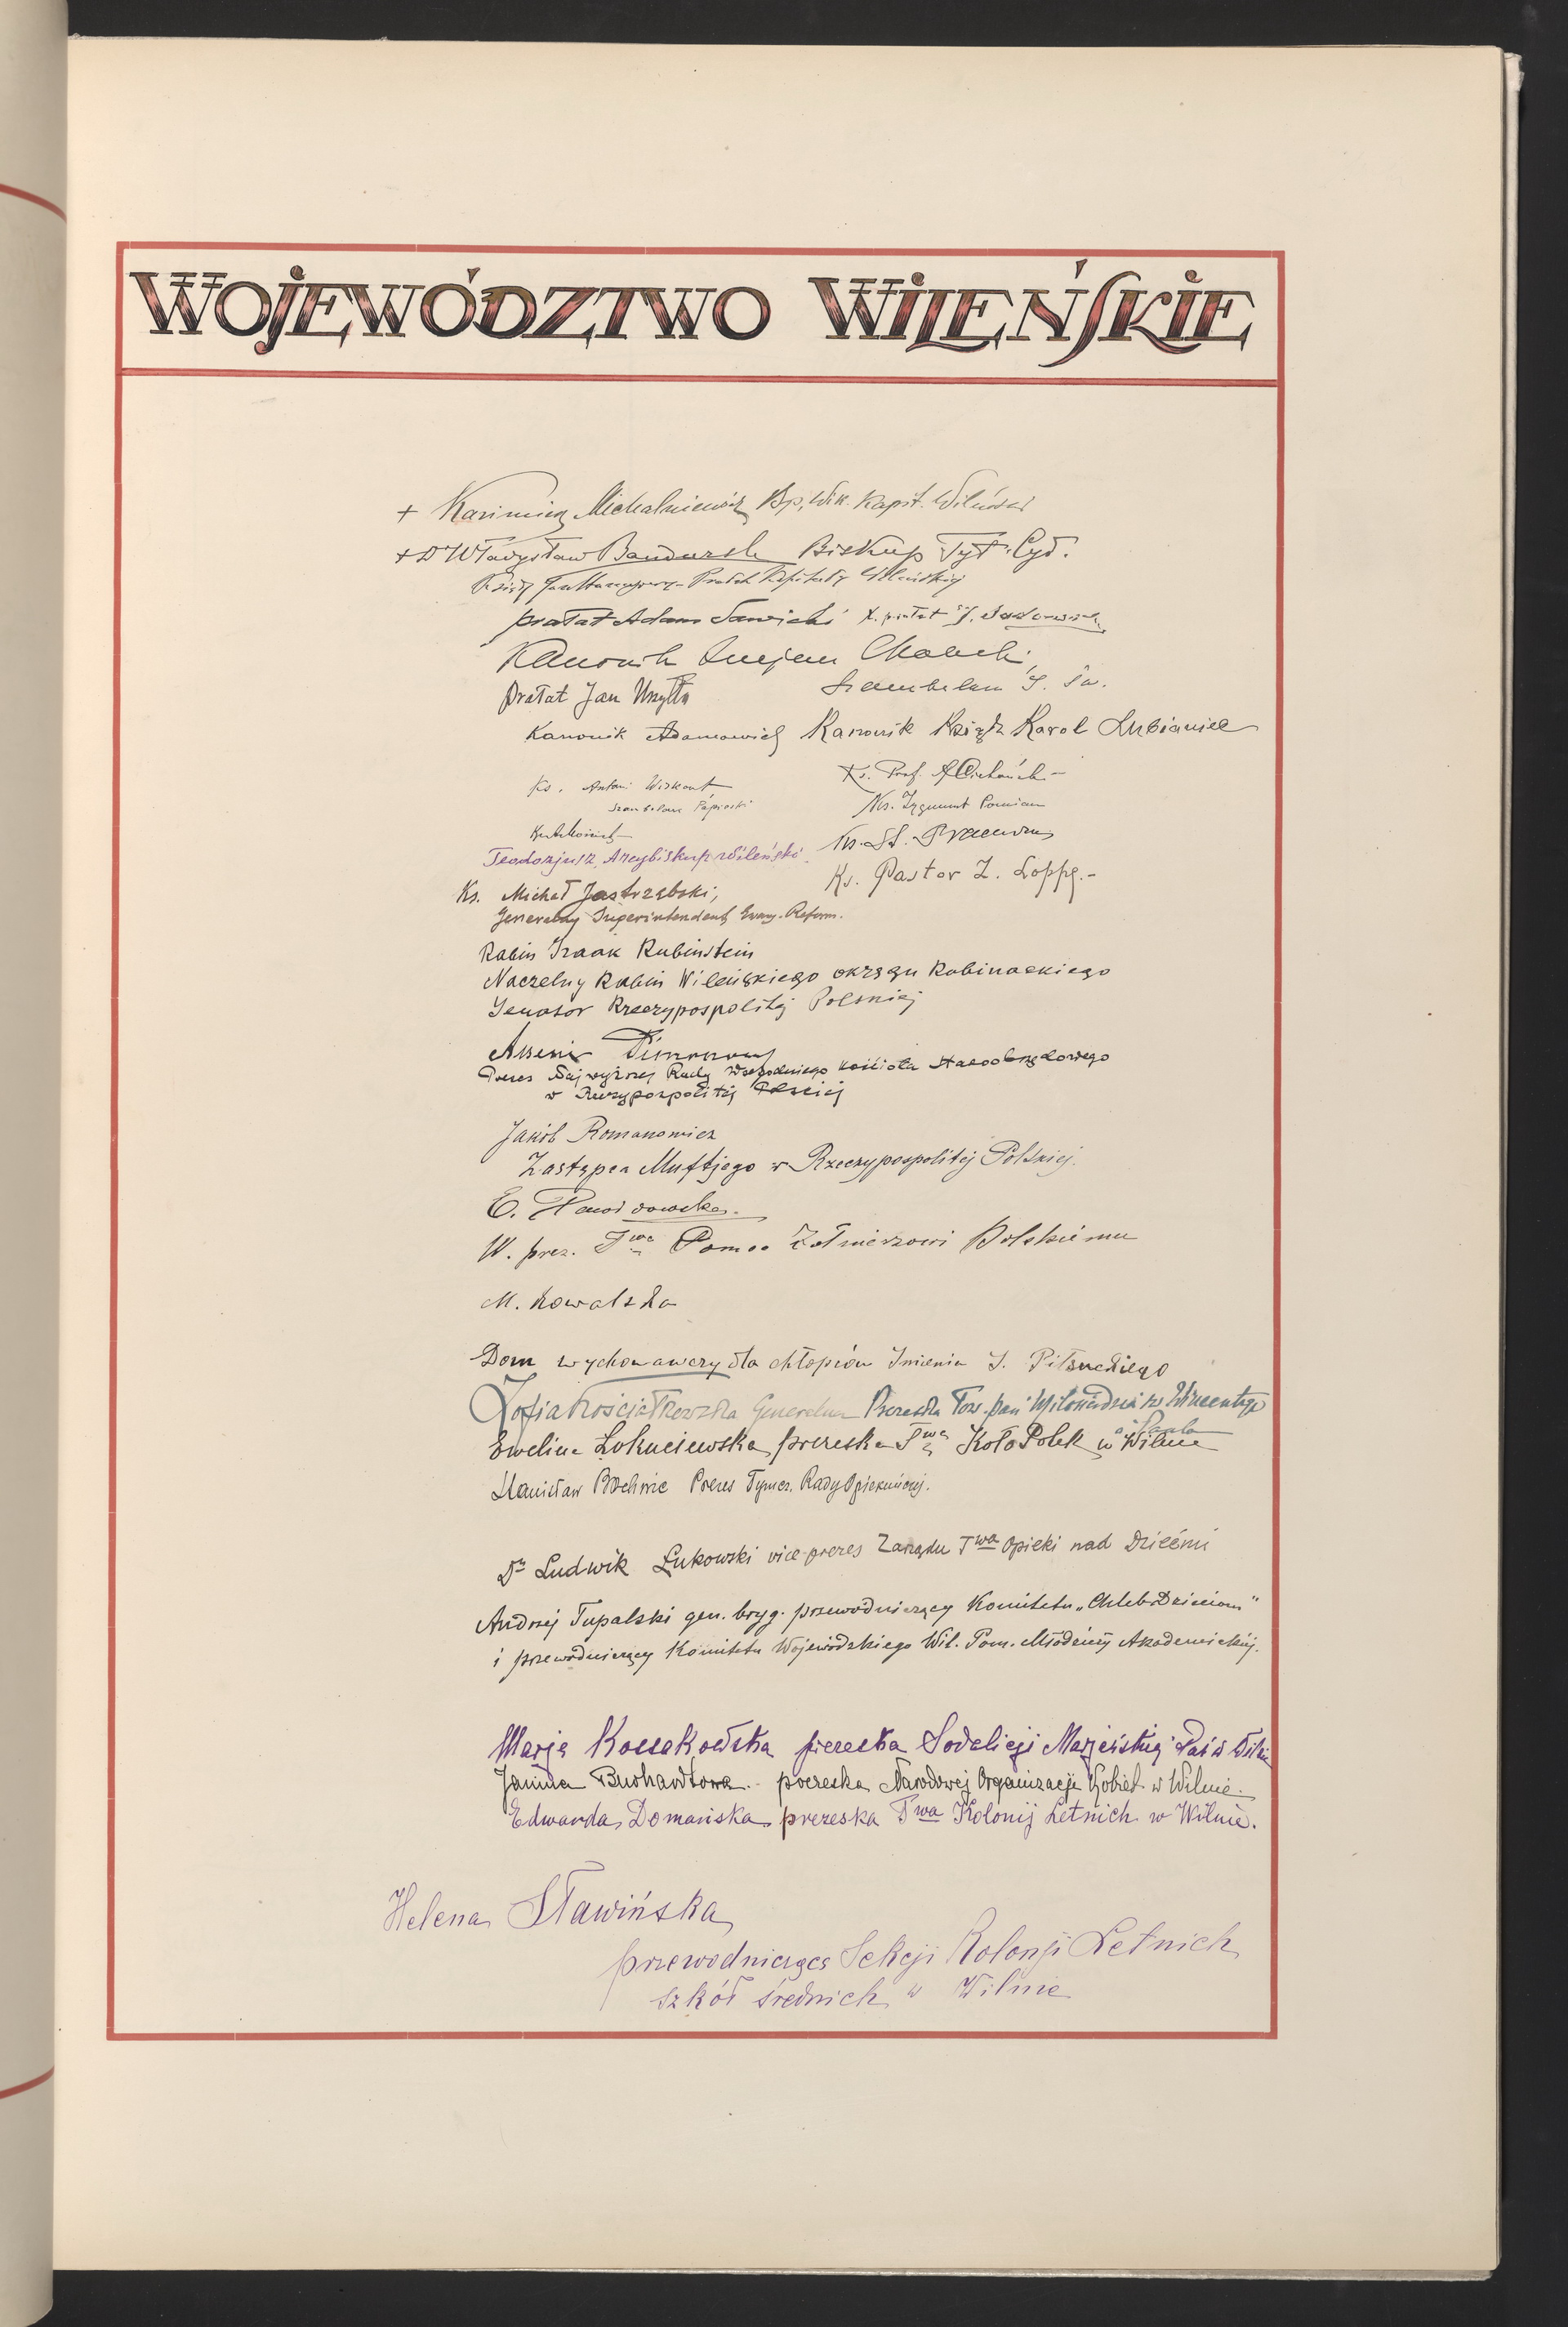 WOJEWÓDZTWO WILEŃSKIE
+ Kazimierz Michalkiewicz Bp, Wik. Kapit. Wileński
+ Dr Władysław Bandurski Biskup Tyt. Cyd.
Ksiądz Jan Hanusowicz - Prałat Kapituły Wileńskiej
prałat Adam Sawicki X. prałat J. Sadowski
Kanonik Lucjan Chalecki
Szambelan J. Św.
Prałat Jan Uszyłło
Kanonik Adamowicz Kanonik Ksiądz Karol Lubianiec
Ks. Antoni Wiskont
Szambelan Papieski
Ks. Prof. A Cichoński
Ks. Zygmunt Pomian
Ks. St.
Teodozjusz, Arcybiskup wileński.
Ks. Pastor Z. Loppe.-
Ks. Michał Jastrzębski,
Generalny Superintendent Ewang. Reform.
Rabin Izaak Rubinstein
Naczelny Rabin Wileńskiego okręgu Rabinackiego
Senator Rzeczypospolitej Polskiej
Arseni Pimonow
Prezes Najwyższej Rady Wschodniego Kościoła Staroobrzędowego
w Rzeczypospolitej Polskiej
Jakób Romanowicz
Zastępca Muftjego w Rzeczypospolitej Polskiej.
E. Dawidowska.
W. prez. Twa Pomoc Żołnierzowi Polskiemu
M. Kowalska
Dom wychowawczy dla chłopców Imienia J. Piłsudskiego
Zofia Kościałkowska Generalna Prezeska Tow. pań Miłosierdzia św Wincentego
a Paulo
Ewelina Łokuciewska prezeska Twa Koło Polek w Wilnie
Stanisław Bochwic Prezes Tymcz. Rady Opiekuńczej.
Dr Ludwik Łukowski vice-prezes Zarządu Twa Opieki nad Dziećmi
Andrzej Tupalski gen. bryg. przewodniczący Komitetu „Chleb Dzieciom"
i przewodniczący Komitetu Wojewódzkiego Wil. Pom. Młodzieży Akademickiej.
Marja Kossakowska prezeska Sodalicji Marjańskiej Pań w Wilnie
Janina Burhardtowa - prezeska Narodowej Organizacji Kobiet w Wilnie.
Edwarda Domańska prezeska Twa Kolonij Letnich w Wilnie.
Helena Sławińska
przewodnicząca Sekcji Kolonji Letnich
szkół średnich w Wilnie